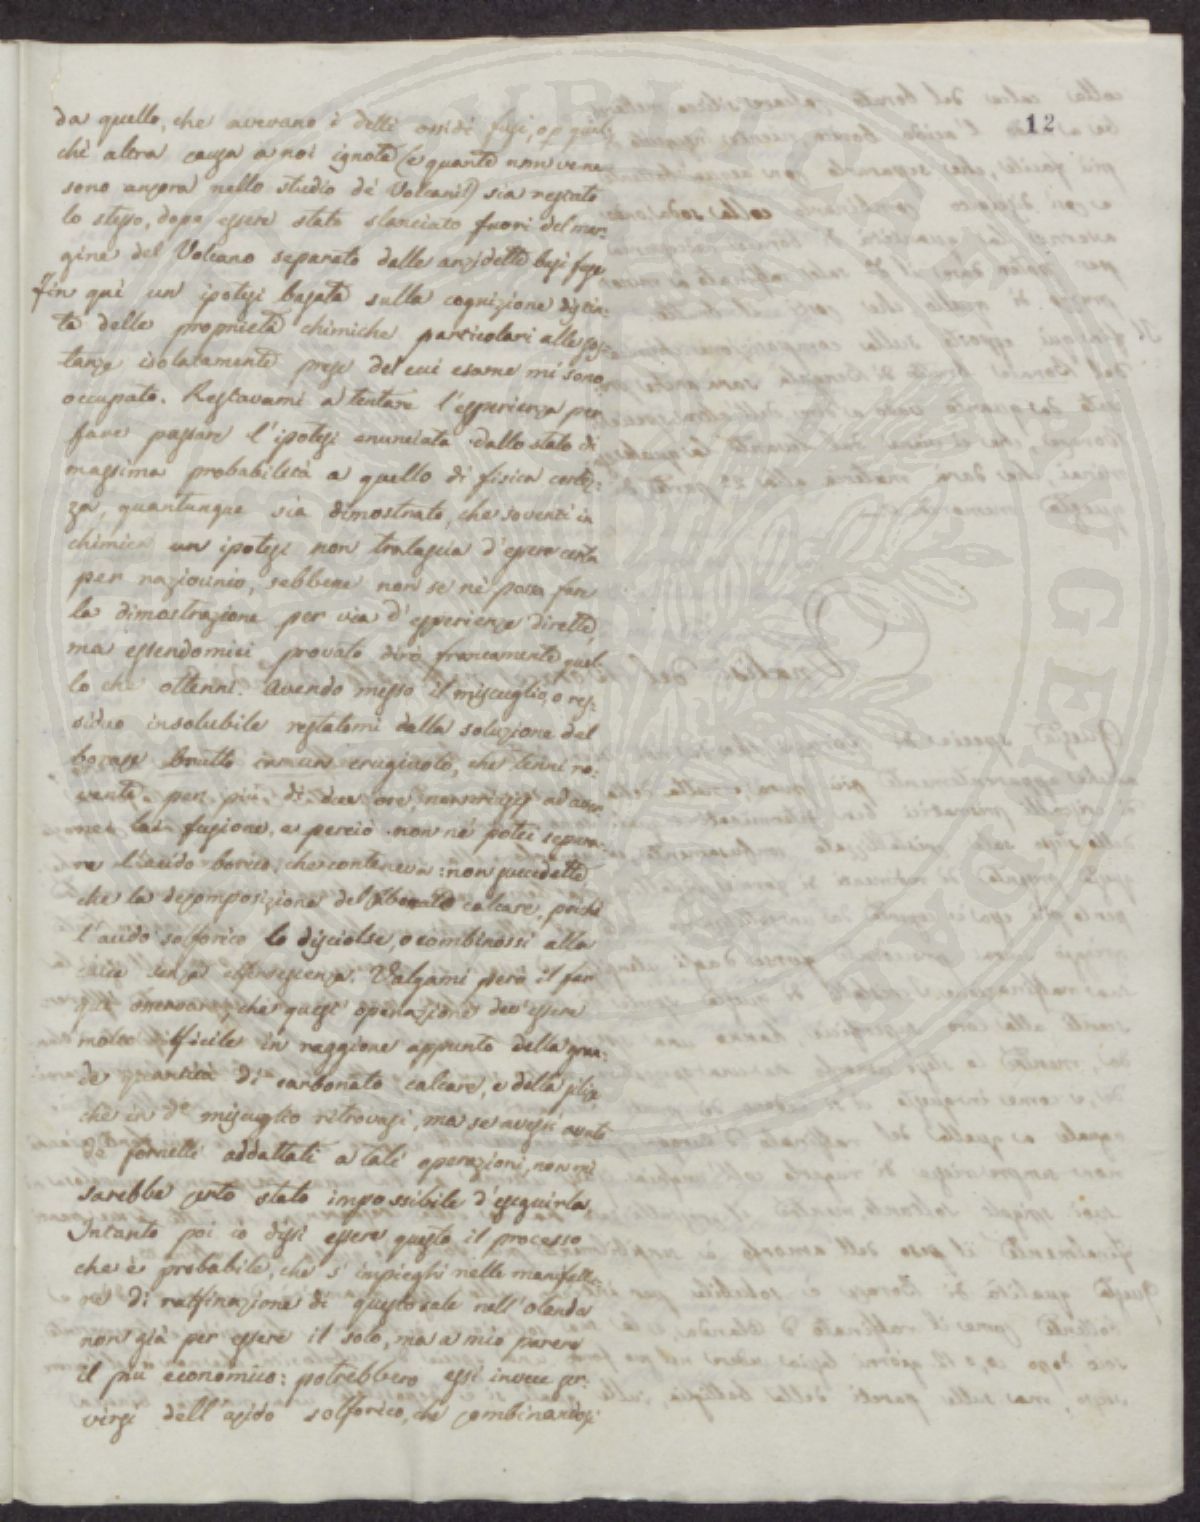 12
da quello, che avevano i detti ossidi fusi, o p qual-
che altra causa a noi ignota (e quante non vene
sono ancora nello studio de' Volcani!) sia restato
lo stesso, dopo essere stato slanciato fuori del mar-
gine del Volcano separato dalle anzidette basi fuse
fin qui un ipotesi basata sulla cognizione distin-
ta delle proprietà chimiche particolari alle sos-
tanze isolatamente prese del cui esame mi sono
occupato. Restavami a tentare l'esperienza per
fare passare l'ipotesi enunciata dallo stato di
massima probabilità a quello di fisica certez-
za, quantunque sia dimostrato, che soventi in
chimica un ipotesi non tralascia d'essere certa
per raziocinio, sebbene non se nè possa far
la dimostrazione per via d'esperienze dirette,
ma essendomici provato dirò francamente quel-
lo che ottenni. Avendo messo il miscuglio, o res-
siduo insolubile restatomi dalla soluzione del
borace brutto in un crugiuolo, che tenni ro-
vente per più di due ore, non riussij ad aver-
ne la fusione, e perciò non nè potei separa-
re l'acido borico, che conteneva: non succedette
che la decomposizione del calcare, poichè
l'acido solforico lo disciolse, o combinossi alla
calce senza effervescenza. Valgami però il far
quì osservare, che quest' operazione dev'essere
molto difficile in raggione appunto della gran-
de quantità di carbonato calcare, e della silice
che in d.o miscuglio ritrovasi, ma se avessi avuto
de' fornelli addattati a tali operazioni, non mi
sarebbe certo stato impossibile d'eseguirla,
Intanto poi io dissi essere questo il processo
che è probabile, che s'impieghi nelle manifattu-
re di raffinazione di questo sale nell'Olanda
non già per essere il solo, ma a mio parere
il più economico: potrebbero essi invece ser-
virsi dell'acido solforico, che combinandosi